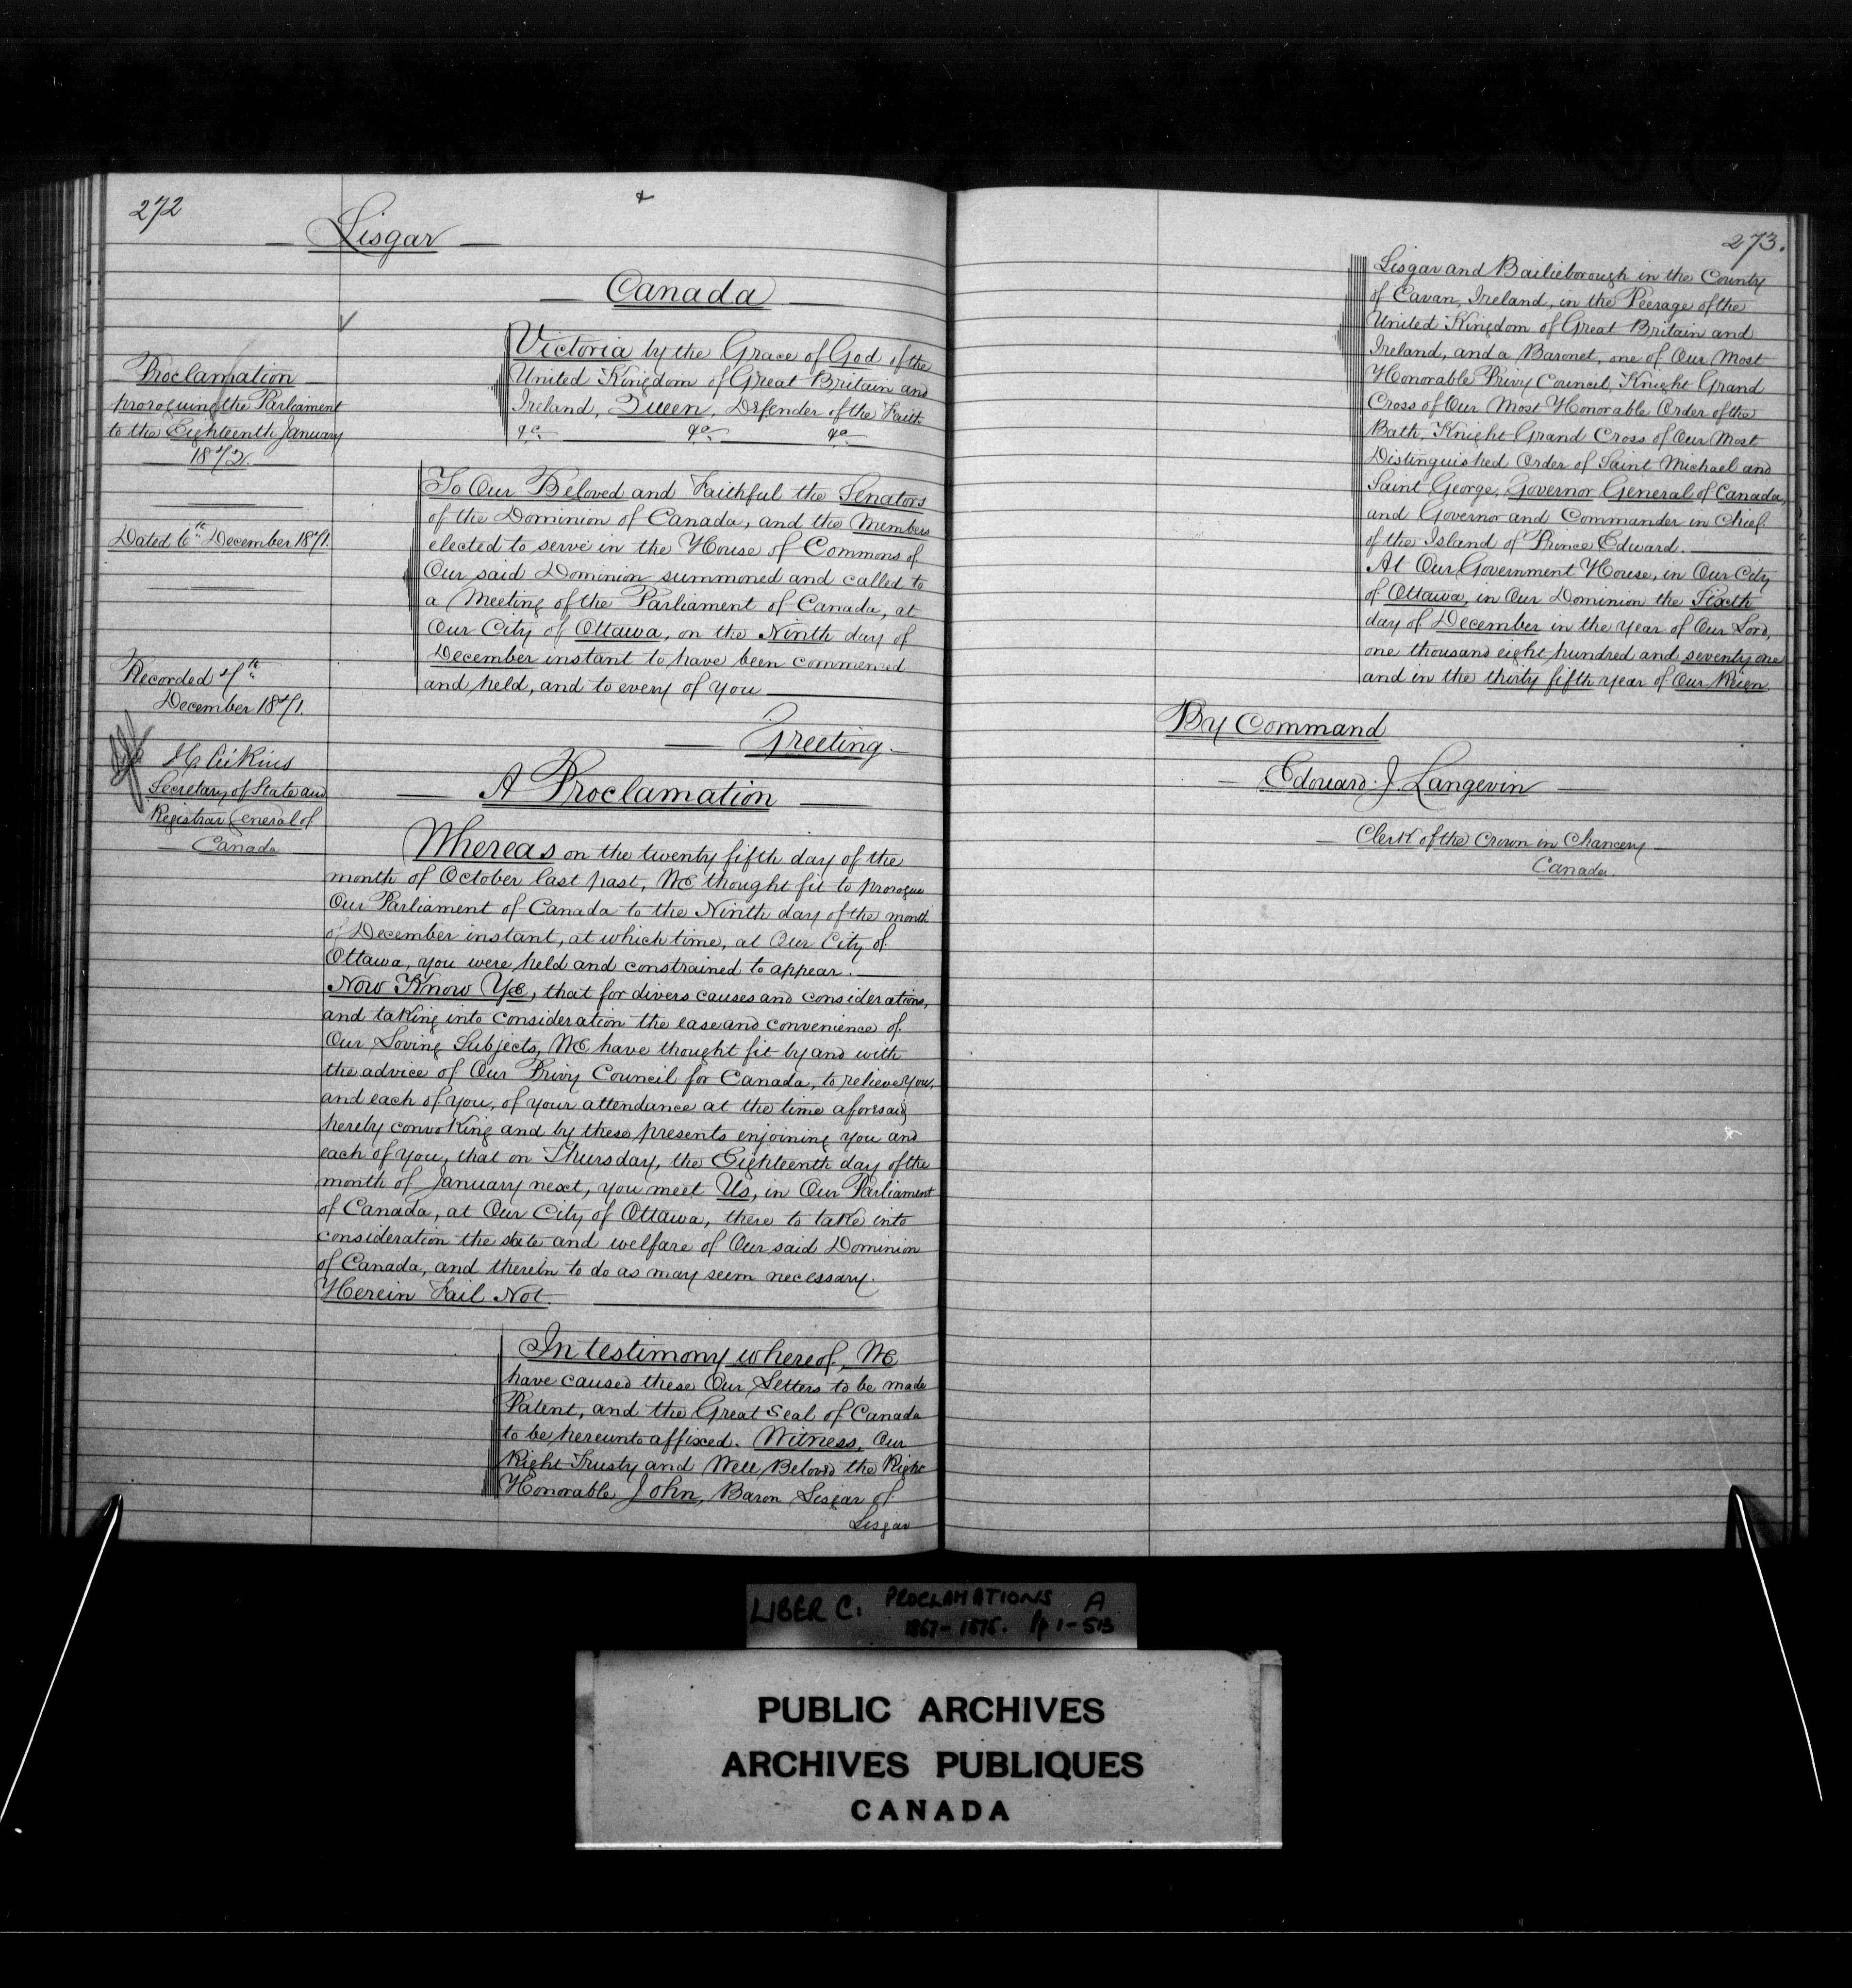 272
Lisgar
Canada
Proclamation
proroguing the Parliament
to the Eighteenth January
1872.
Dated 6th December 1871.
Recorded 7th
December 1871.
J C Aikins
Secretary of State and
Registrar General of
Canada
Victoria by the Grace of God of the
United Kingdom of Great Britain and
Ireland, Queen, Defender of the Faith
&c. &c. &c.
To Our Beloved and Faithful the Senators
of the Dominion of Canada, and the Members
elected to serve in the House of Commons of
Our said Dominion summoned and called to
a Meeting of the Parliament of Canada, at
Our City of Ottawa, on the Ninth day of
December instant to have been commenced
and held, and to every of you
Greeting.
A Proclamation
Whereas on the twenty fifth day of the
month of October last past, We thought fit to prorogue
Our Parliament of Canada to the Ninth day of the month
of December instant, at which time, at Our City of
Ottawa, you were held and constrained to appear.
Now Know Ye, that for divers causes and considerations,
and taking into consideration the ease and convenience of
Our Loving Subjects, We have thought fit by and with
the advice of Our Privy Council for Canada, to relieve you,
and each of you, of your attendance at the time aforesaid
hereby convoking and by these presents enjoining you and
each of you, that on Thursday, the Eighteenth day of the
month of January next, you meet Us, in Our Parliament
of Canada, at Our City of Ottawa, there to take into
consideration the state and welfare of Our said Dominion
of Canada, and therein to do as may seem necessary.
Herein Fail Not.
In testimony whereof, We
have caused these Our Letters to be made
Patent, and the Great Seal of Canada
to be hereunto affixed. Witness, Our
Right Trusty and Well Beloved the Right
Honorable John, Baron Lisgar of
Lisgar
273.
Lisgar and Bailieborough in the County
of Cavan, Ireland, in the Peerage of the
United Kingdom of Great Britain and
Ireland, and a Baronet, one of Our Most
Honorable Privy Council, Knight Grand
Cross of Our Most Honorable Order of the
Bath, Knight Grand Cross of Our Most
Distinguished Order of Saint Michael and
Saint George, Governor General of Canada,
and Governor and Commander in Chief
of the Island of Prince Edward.
At Our Government House, in Our City
of Ottawa, in Our Dominion the Sixth
day of December in the year of Our Lord,
one thousand eight hundred and seventy one
and in the thirty fifth year of Our Reign.
By Command
Edouard J. Langevin
Clerk of the Crown in Chancery
Canada.
LIBER C. PROCLAMATIONS A
1867-1875. Pp 1-513
PUBLIC ARCHIVES
ARCHIVES PUBLIQUES
CANADA